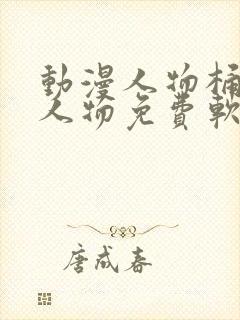 動漫人物桶
人物免費軟
唐咸春